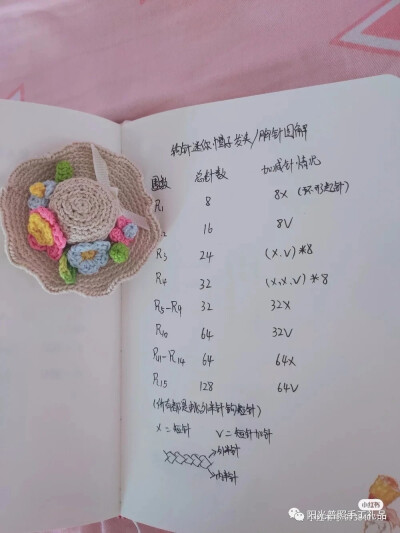 钩针迷你帽子发夹/胸针图解
圈数 总针数 加减针情况
R1 8 8X (环形起针)
2 16 8V
R3 24 (X,V)*8
R4 32 (X,X,V)*8
R5-R9 32 32X
R10 64 32V
R11-R14 64 64X
R15 128 64V
(所有都是挑外半针钩短针)
X=短针 V=短针加针
外半针
内半针
小红书
阳光普照手工礼品